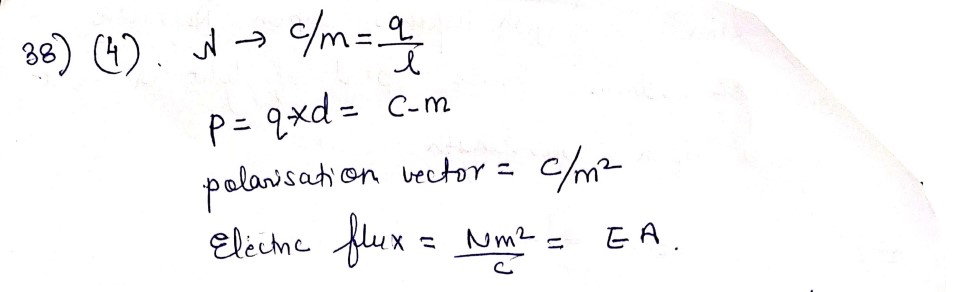 38) (4). λ → C/m = q/l
P = q×d = C-m
polarisation vector = C/m²
Electric flux = Nm²/C = EA.